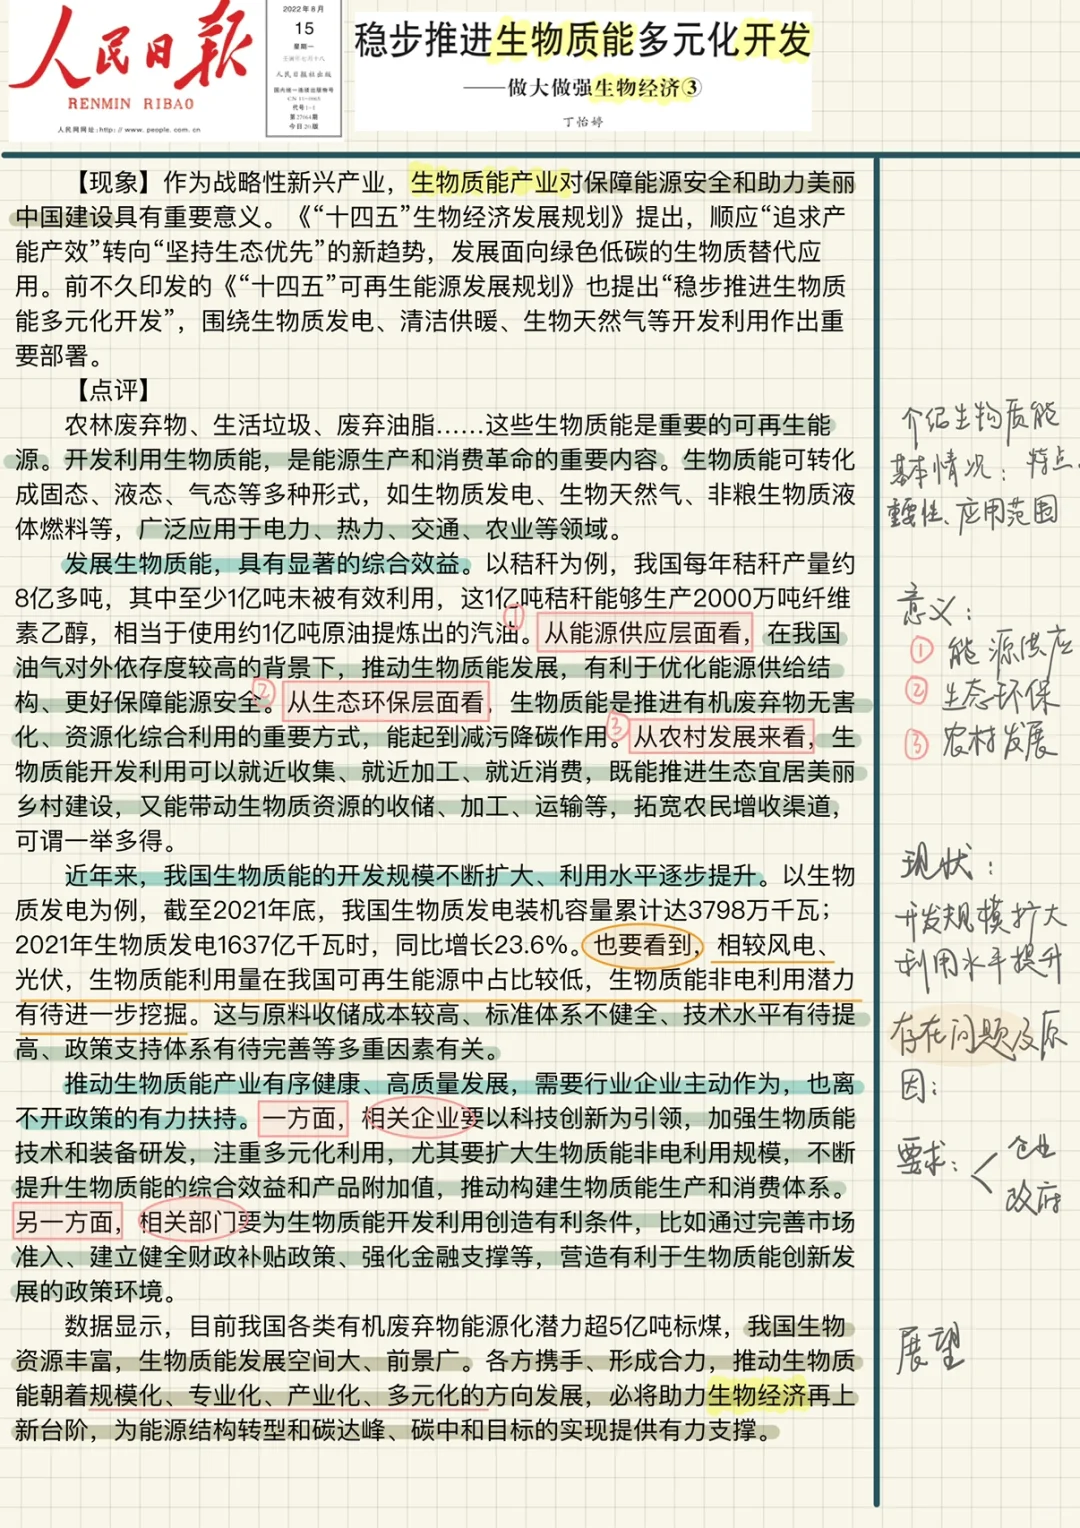 人民日报
RENMIN RIBAO
人民网网址:http://www.people.com.cn
2022年8月
15
星期一
壬寅年七月十八
人民日报社出版
国内统一连续出版物号
CN 11-0065
代号1-1
今日20版
稳步推进生物质能多元化开发
——做大做强生物经济③
丁怡婷
【现象】作为战略性新兴产业，生物质能产业对保障能源安全和助力美丽
中国建设具有重要意义。《“十四五”生物经济发展规划》提出，顺应“追求产
能产效”转向“坚持生态优先”的新趋势，发展面向绿色低碳的生物质替代应
用。前不久印发的《“十四五”可再生能源发展规划》也提出“稳步推进生物质
能多元化开发”，围绕生物质发电、清洁供暖、生物天然气等开发利用作出重
要部署。
【点评】
农林废弃物、生活垃圾、废弃油脂……这些生物质能是重要的可再生能
源。开发利用生物质能，是能源生产和消费革命的重要内容。生物质能可转化
成固态、液态、气态等多种形式，如生物质发电、生物天然气、非粮生物质液
体燃料等，广泛应用于电力、热力、交通、农业等领域。
发展生物质能，具有显著的综合效益。以秸秆为例，我国每年秸秆产量约
8亿多吨，其中至少1亿吨未被有效利用，这1亿吨秸秆能够生产2000万吨纤维
素乙醇，相当于使用约1亿吨原油提炼出的汽油。①从能源供应层面看，在我国
油气对外依存度较高的背景下，推动生物质能发展，有利于优化能源供给结
构、更好保障能源安全。②从生态环保层面看，生物质能是推进有机废弃物无害
化、资源化综合利用的重要方式，能起到减污降碳作用。③从农村发展来看，生
物质能开发利用可以就近收集、就近加工、就近消费，既能推进生态宜居美丽
乡村建设，又能带动生物质资源的收储、加工、运输等，拓宽农民增收渠道，
可谓一举多得。
近年来，我国生物质能的开发规模不断扩大、利用水平逐步提升。以生物
质发电为例，截至2021年底，我国生物质发电装机容量累计达3798万千瓦；
2021年生物质发电1637亿千瓦时，同比增长23.6%。也要看到，相较风电、
光伏，生物质能利用量在我国可再生能源中占比较低，生物质能非电利用潜力
有待进一步挖掘。这与原料收储成本较高、标准体系不健全、技术水平有待提
高、政策支持体系有待完善等多重因素有关。
推动生物质能产业有序健康、高质量发展，需要行业企业主动作为，也离
不开政策的有力扶持。一方面，相关企业要以科技创新为引领，加强生物质能
技术和装备研发，注重多元化利用，尤其要扩大生物质能非电利用规模，不断
提升生物质能的综合效益和产品附加值，推动构建生物质能生产和消费体系。
另一方面，相关部门要为生物质能开发利用创造有利条件，比如通过完善市场
准入、建立健全财政补贴政策、强化金融支撑等，营造有利于生物质能创新发
展的政策环境。
数据显示，目前我国各类有机废弃物能源化潜力超5亿吨标煤，我国生物
资源丰富，生物质能发展空间大、前景广。各方携手、形成合力，推动生物质
能朝着规模化、专业化、产业化、多元化的方向发展，必将助力生物经济再上
新台阶，为能源结构转型和碳达峰、碳中和目标的实现提供有力支撑。
介绍生物质能
基本情况：特点、
重要性、应用范围
意义：
① 能源供应
② 生态环保
③ 农村发展
现状：
开发规模扩大
利用水平提升
存在问题及原
因：
要求：企业
政府
展望